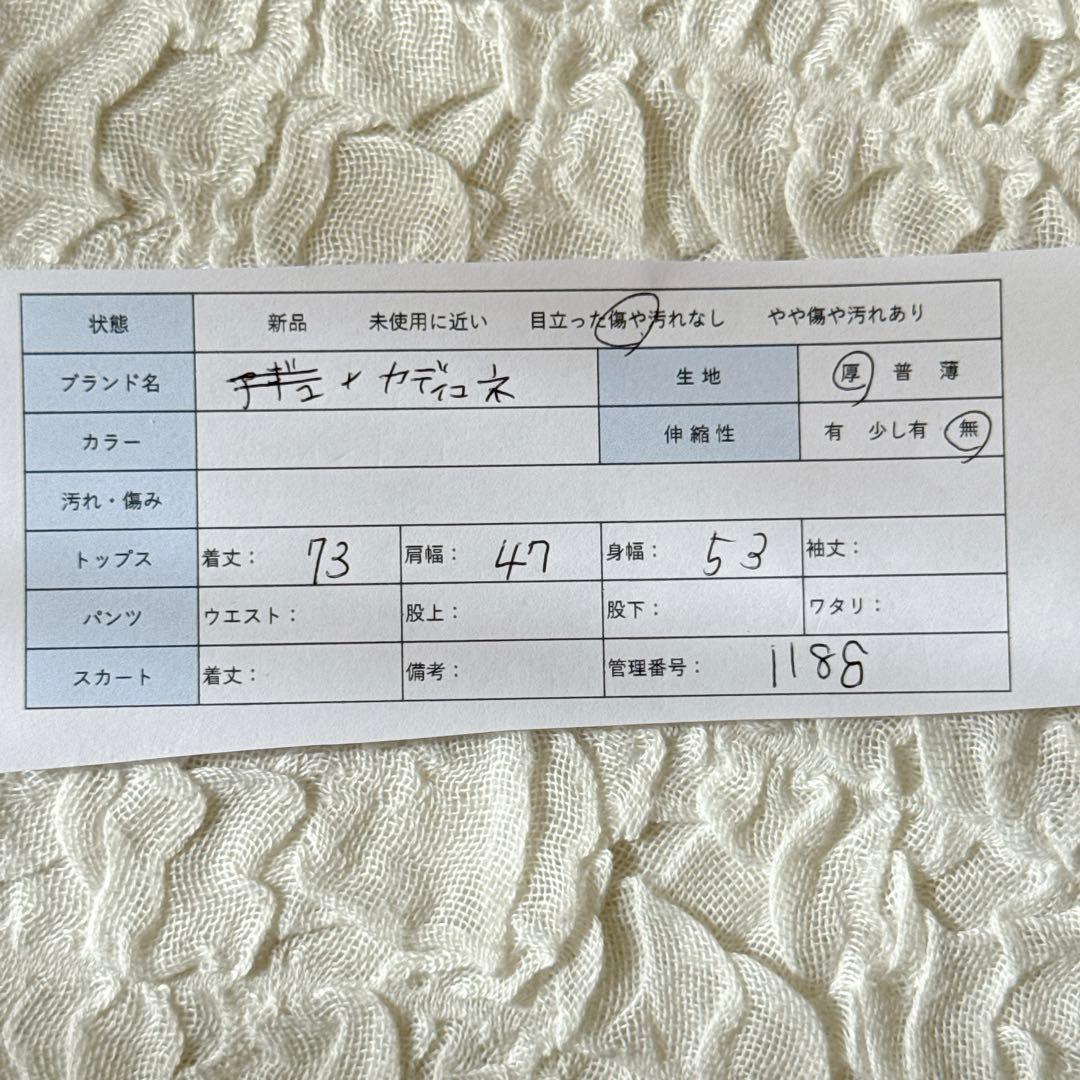 状態 新品 未使用に近い 目立った傷や汚れなし やや傷や汚れあり
ブランド名 カディユネ 生地 厚 普 薄
カラー 伸縮性 有 少し有 無
汚れ・傷み
トップス 着丈: 73 肩幅: 47 身幅: 53 袖丈:
パンツ ウエスト: 股上: 股下: ワタリ:
スカート 着丈: 備考: 管理番号: 1188